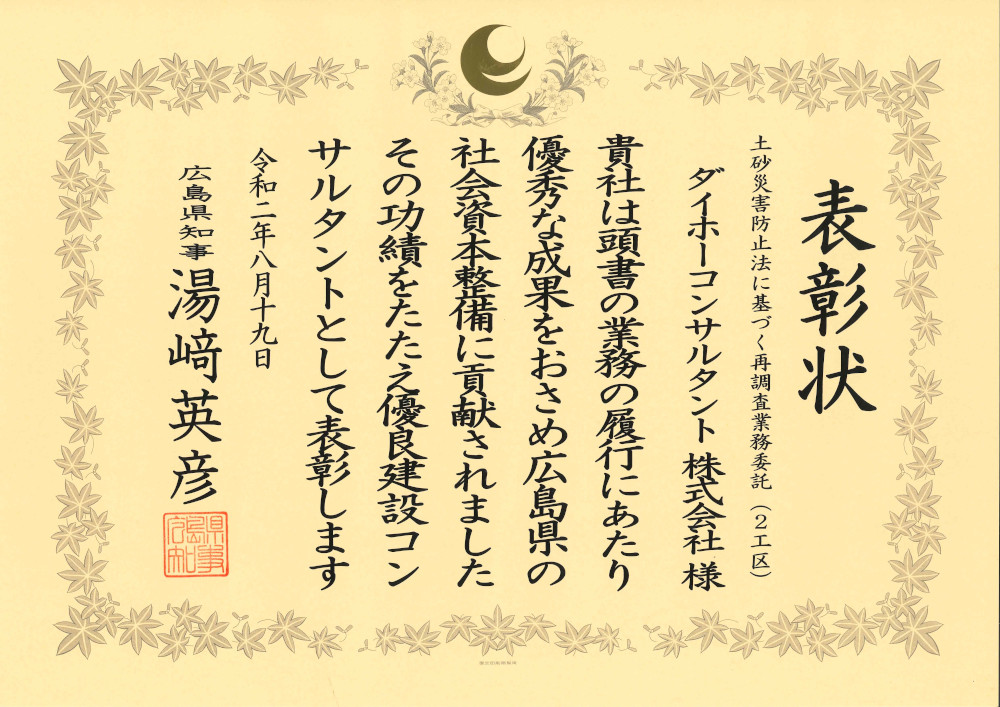 表彰状
土砂災害防止法に基づく再調査業務委託（２工区）
ダイホーコンサルタント 株式会社 様
貴社は頭書の業務の履行にあたり
優秀な成果をおさめ広島県の
社会資本整備に貢献されました
その功績をたたえ優良建設コン
サルタントとして表彰します
令和二年八月十九日
広島県知事 湯﨑英彦